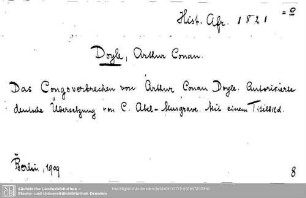 Hist. Afr. 1821 =0
Doyle, Arthur Conan.
Das Congoverbrechen von Arthur Conan Doyle. Autorisierte
deutsche Übersetzung von C. Abel-Musgrave. Mit einem Titelbild.
Berlin, 1909
8
Sächsische Landesbibliothek -
Staats- und Universitätsbibliothek Dresden